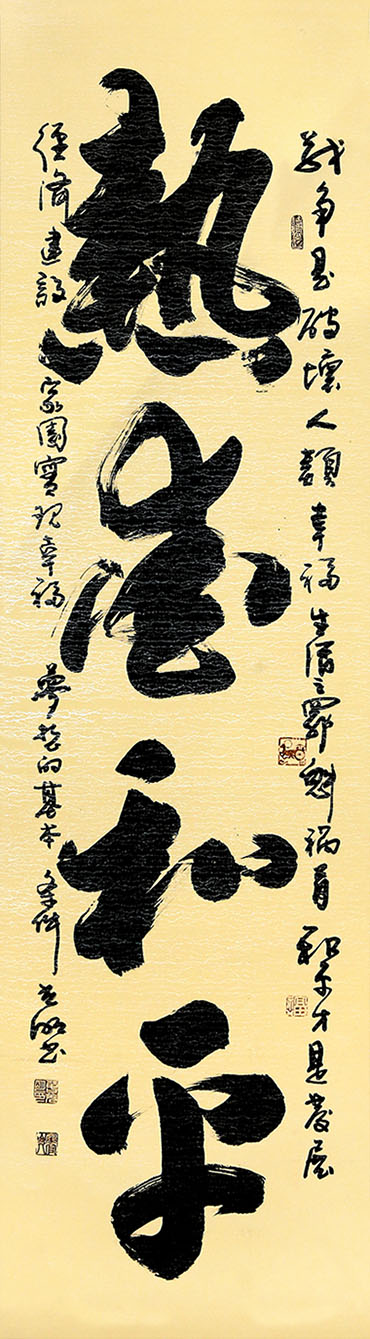 熱愛和平
战争是破壞人類幸福生活之罪魁祸首和平才是發展
經濟建設家園實現幸福夢想的基本条件